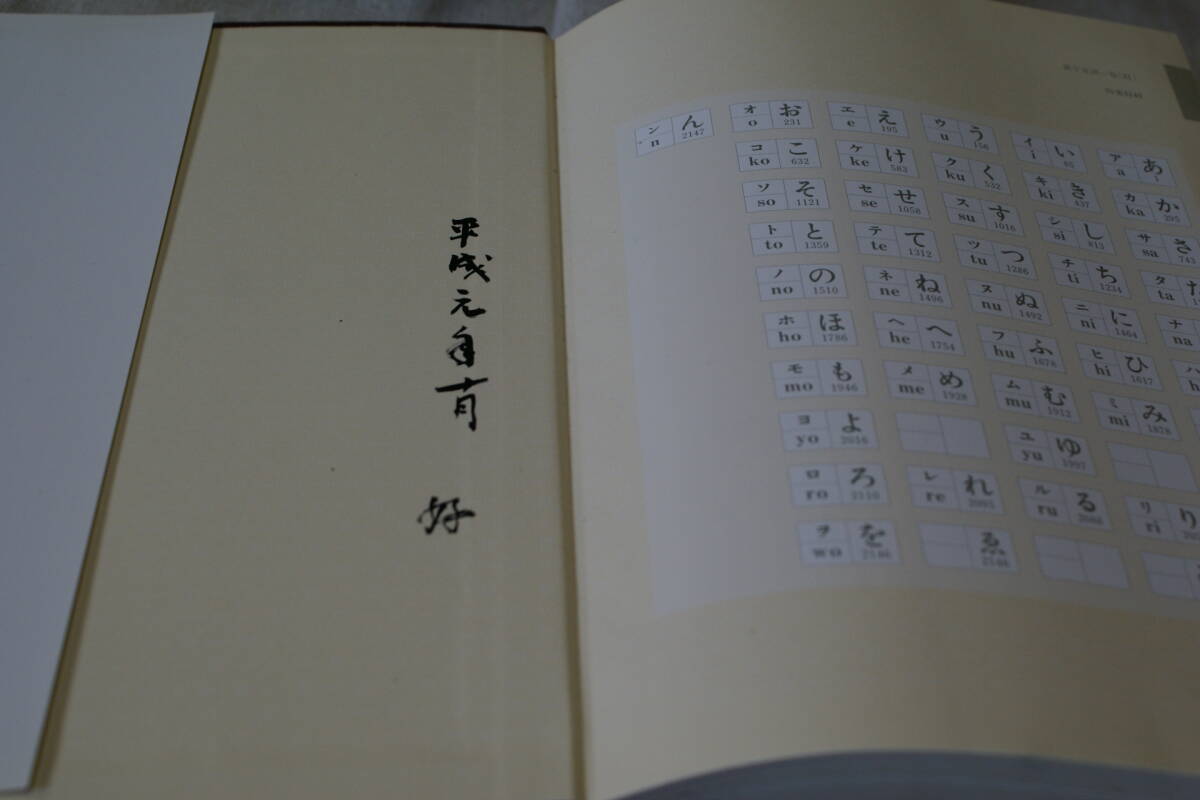 平成元年十月
好
ン ん n 2147
オ お o 231
エ え e 195
ウ う u 156
イ い i 65
ア あ a 1
コ こ ko 632
ケ け ke 583
ク く ku 532
キ き ki 437
カ か ka 295
ソ そ so 1121
セ せ se 1058
ス す su 1016
シ し si 813
サ さ sa 743
ト と to 1359
テ て te 1312
ツ つ tu 1286
チ ち ti 1234
タ ta
ノ の no 1510
ネ ね ne 1496
ヌ ぬ nu 1492
ニ に ni 1464
ナ na
ホ ほ ho 1786
ヘ へ he 1754
フ ふ hu 1678
ヒ ひ hi 1617
ハ
モ も mo 1946
メ め me 1928
ム む mu 1912
ミ み mi 1878
ヨ よ yo 2016
ユ ゆ yu 1997
ロ ろ ro 2110
レ れ re 2095
ル る ru 2088
リ り ri
ヲ を wo 2146
ゑ 2146